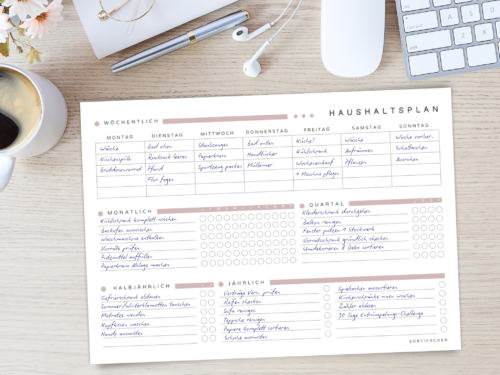 HAUSHALTSPLAN
WÖCHENTLICH
MONTAG DIENSTAG MITTWOCH DONNERSTAG FREITAG SAMSTAG SONNTAG
Wäsche Bad oben Staubsaugen Bad unten Küche! Wäsche Woche vorber.
Küchenspüle Rucksack leeren Papierkram Handtücher Kühlschrank Aufräumen SchulTaschen
Pfand Sportzeug packen Mülleimer Wocheneinkauf Pflanzen Ausruhen
Flur fegen + Maschine pflegen
MONATLICH
Kühlschrank komplett waschen
Backofen auswischen
Waschmaschine entkalken
Vorräte prüfen
Putzmittel auffüllen
Papierkram Ablage machen
QUARTAL
Kleiderschrank durchgehen
Balkon reinigen
Fenster putzen
Vorratsschrank gründlich checken
HALBJÄHRLICH
Gefrierschrank abtauen
Sommer/Winterklamotten tauschen
Matratze wenden
Kopfkissen waschen
JÄHRLICH
Verträge Vers. prüfen
Sofa reinigen
Teppiche reinigen
Papiere komplett sortieren
Schuhe ausmisten
Spielsachen aussortieren
Küchenschränke innen wischen
Zähler ablesen
30 Tage Entrümpelungs-Challenge
SORTIERCHEN